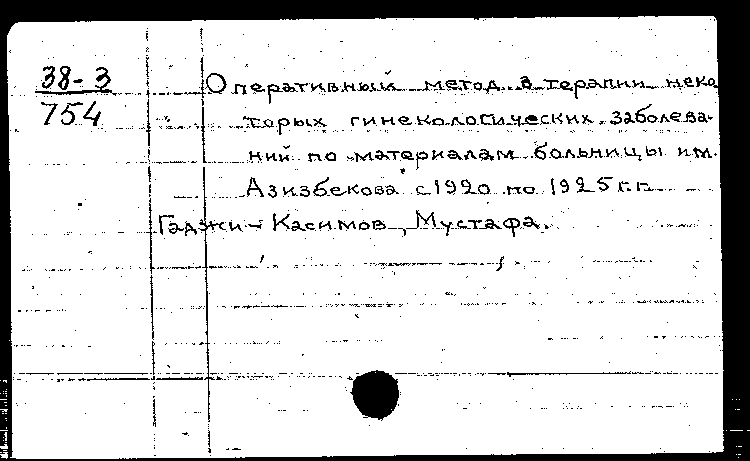 38-3
754
Оперативный метод в терапии неко
торых гинекологических заболева-
ний по материалам больницы им.
Азизбекова с 1920 по 1925 г.г.
Гаджи-Касимов, Мустафа.